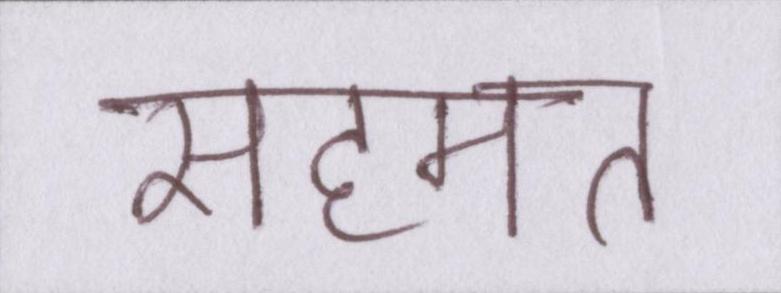 सहमत